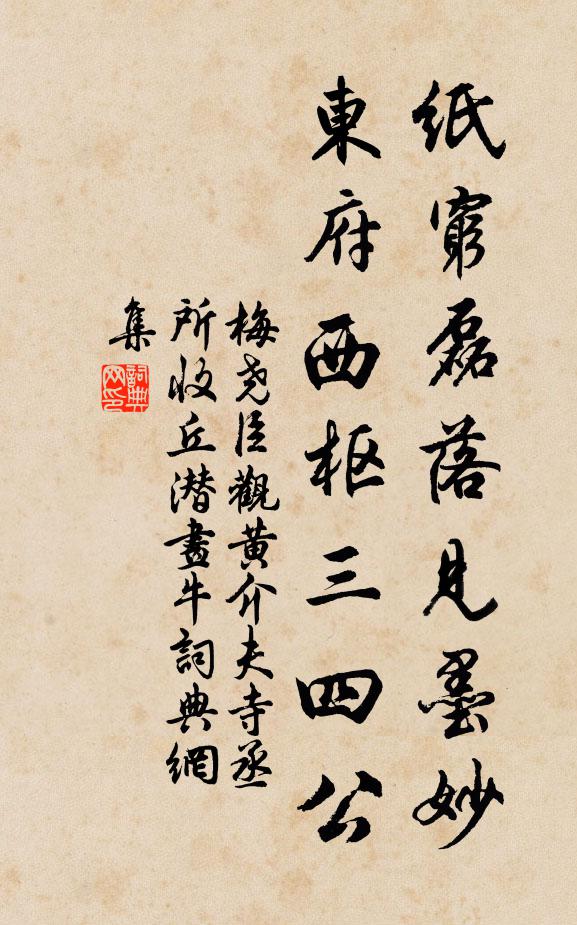 紙窮磊落見墨妙
東府西枢三四公
梅尧臣觀黄介夫寺丞
所收丘潜畫牛詞典網
集
詞典网印